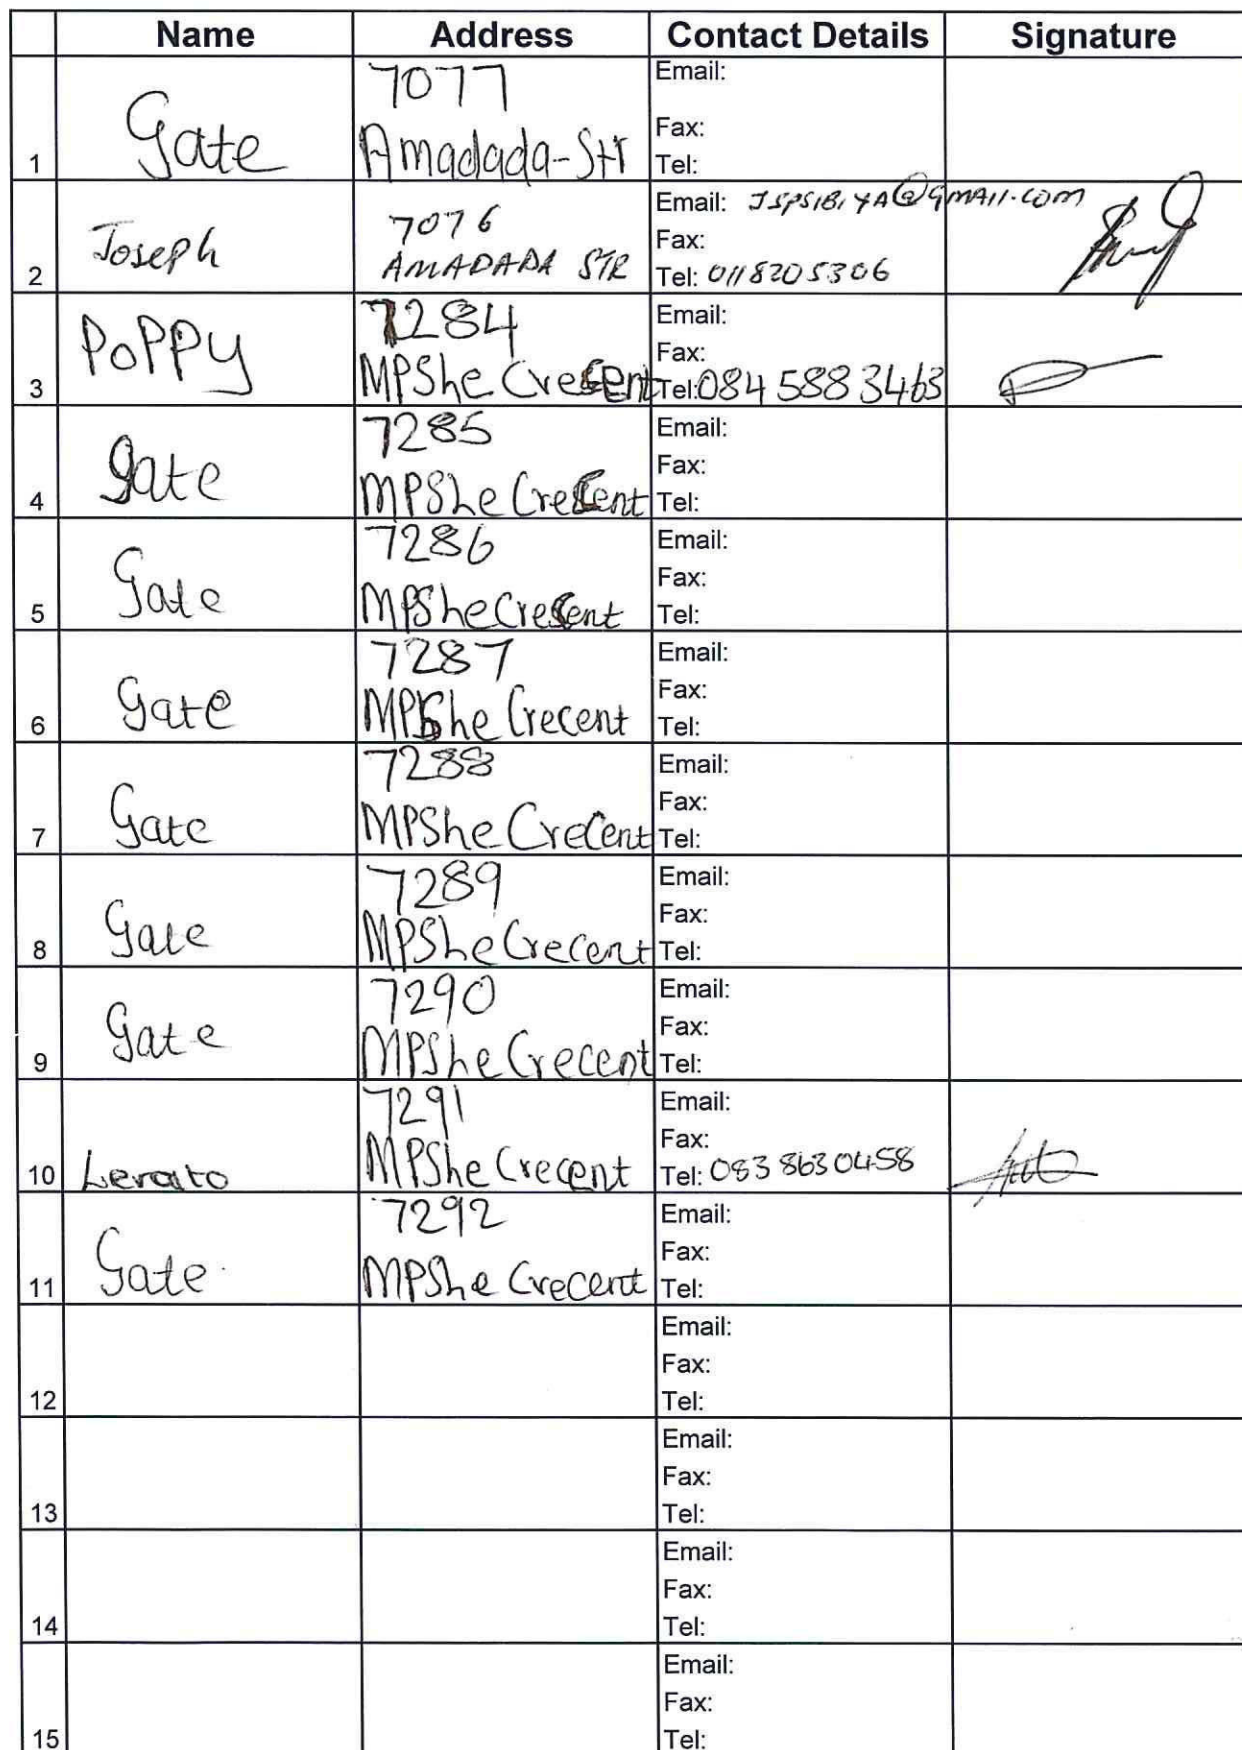 Name Address Contact Details Signature
1 Gate 7077 Amadada-Str Email:
Fax:
Tel:
2 Joseph 7076 AMADADA STR Email: JSPSIBIYA@GMAIL.COM
Fax:
Tel: 0118205306
3 POPPY 7284 MPShe Crescent Email:
Fax:
Tel: 084 588 3463
4 gate 7285 MPShe Crescent Email:
Fax:
Tel:
5 Gate 7286 MPShe Crescent Email:
Fax:
Tel:
6 gate 7287 MPShe Crecent Email:
Fax:
Tel:
7 Gate 7288 MPShe Crecent Email:
Fax:
Tel:
8 Gate 7289 MPShe Crecent Email:
Fax:
Tel:
9 Gate 7290 MPShe Crecent Email:
Fax:
Tel:
10 Lerato 7291 MPShe Crecent Email:
Fax:
Tel: 083 863 0458
11 Gate 7292 MPShe Crecent Email:
Fax:
Tel:
12 Email:
Fax:
Tel:
13 Email:
Fax:
Tel:
14 Email:
Fax:
Tel:
15 Email:
Fax:
Tel: